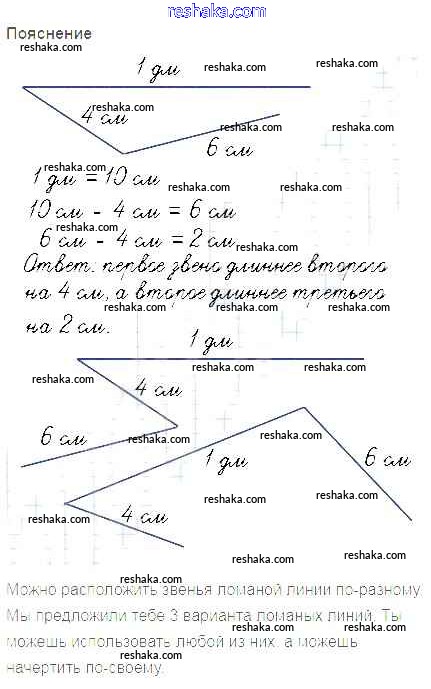 www.reshaka.com
Пояснение
reshaka.com
1 дм
reshaka.com
reshaka.com
4 см
reshaka.com
reshaka.com
6 см
reshaka.com
1 дм = 10 см
reshaka.com
10 см - 4 см = 6 см
reshaka.com
6 см - 4 см = 2 см
reshaka.com
Ответ: первое звено длиннее второго
reshaka.com
reshaka.com
на 4 см, а второе длиннее третьего
reshaka.com
reshaka.com
reshaka.com
на 2 см.
1 дм
reshaka.com
reshaka.com
reshaka.com
4 см
reshaka.com
6 см
reshaka.com
reshaka.com
1 дм
6 см
reshaka.com
reshaka.com
reshaka.com
4 см
reshaka.com
reshaka.com
reshaka.com
reshaka.com
reshaka.com
Можно расположить звенья ломаной линии по-разному.
reshaka.com
reshaka.com
Мы предложили тебе 3 варианта ломаных линий. Ты
reshaka.com
reshaka.com
reshaka.com
можешь использовать любой из них, а можешь
reshaka.com
reshaka.com
начертить по-своему.
reshaka.com